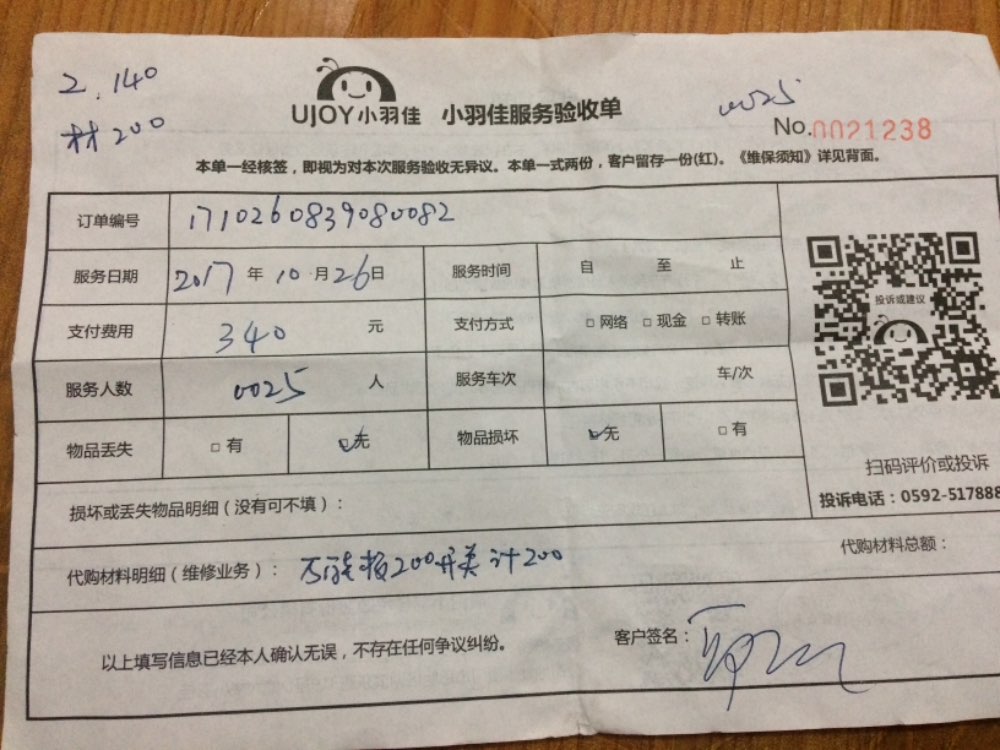 2.140
材200
UJOY小羽佳 小羽佳服务验收单
0025
No.0021238
本单一经核签，即视为对本次服务验收无异议。本单一式两份，客户留存一份(红)。《维保须知》详见背面。
订单编号 1710260839080082
服务日期 2017年10月26日 服务时间 自 至 止
支付费用 340 元 支付方式 □网络 □现金 □转账
投诉或建议
服务人数 0025 人 服务车次 车/次
物品丢失 □有 ☑无 物品损坏 ☑无 □有
扫码评价或投诉
投诉电话：0592-517888
损坏或丢失物品明细（没有可不填）：
代购材料总额：
代购材料明细（维修业务）：万能板200开关 计200
以上填写信息已经本人确认无误，不存在任何争议纠纷。 客户签名：